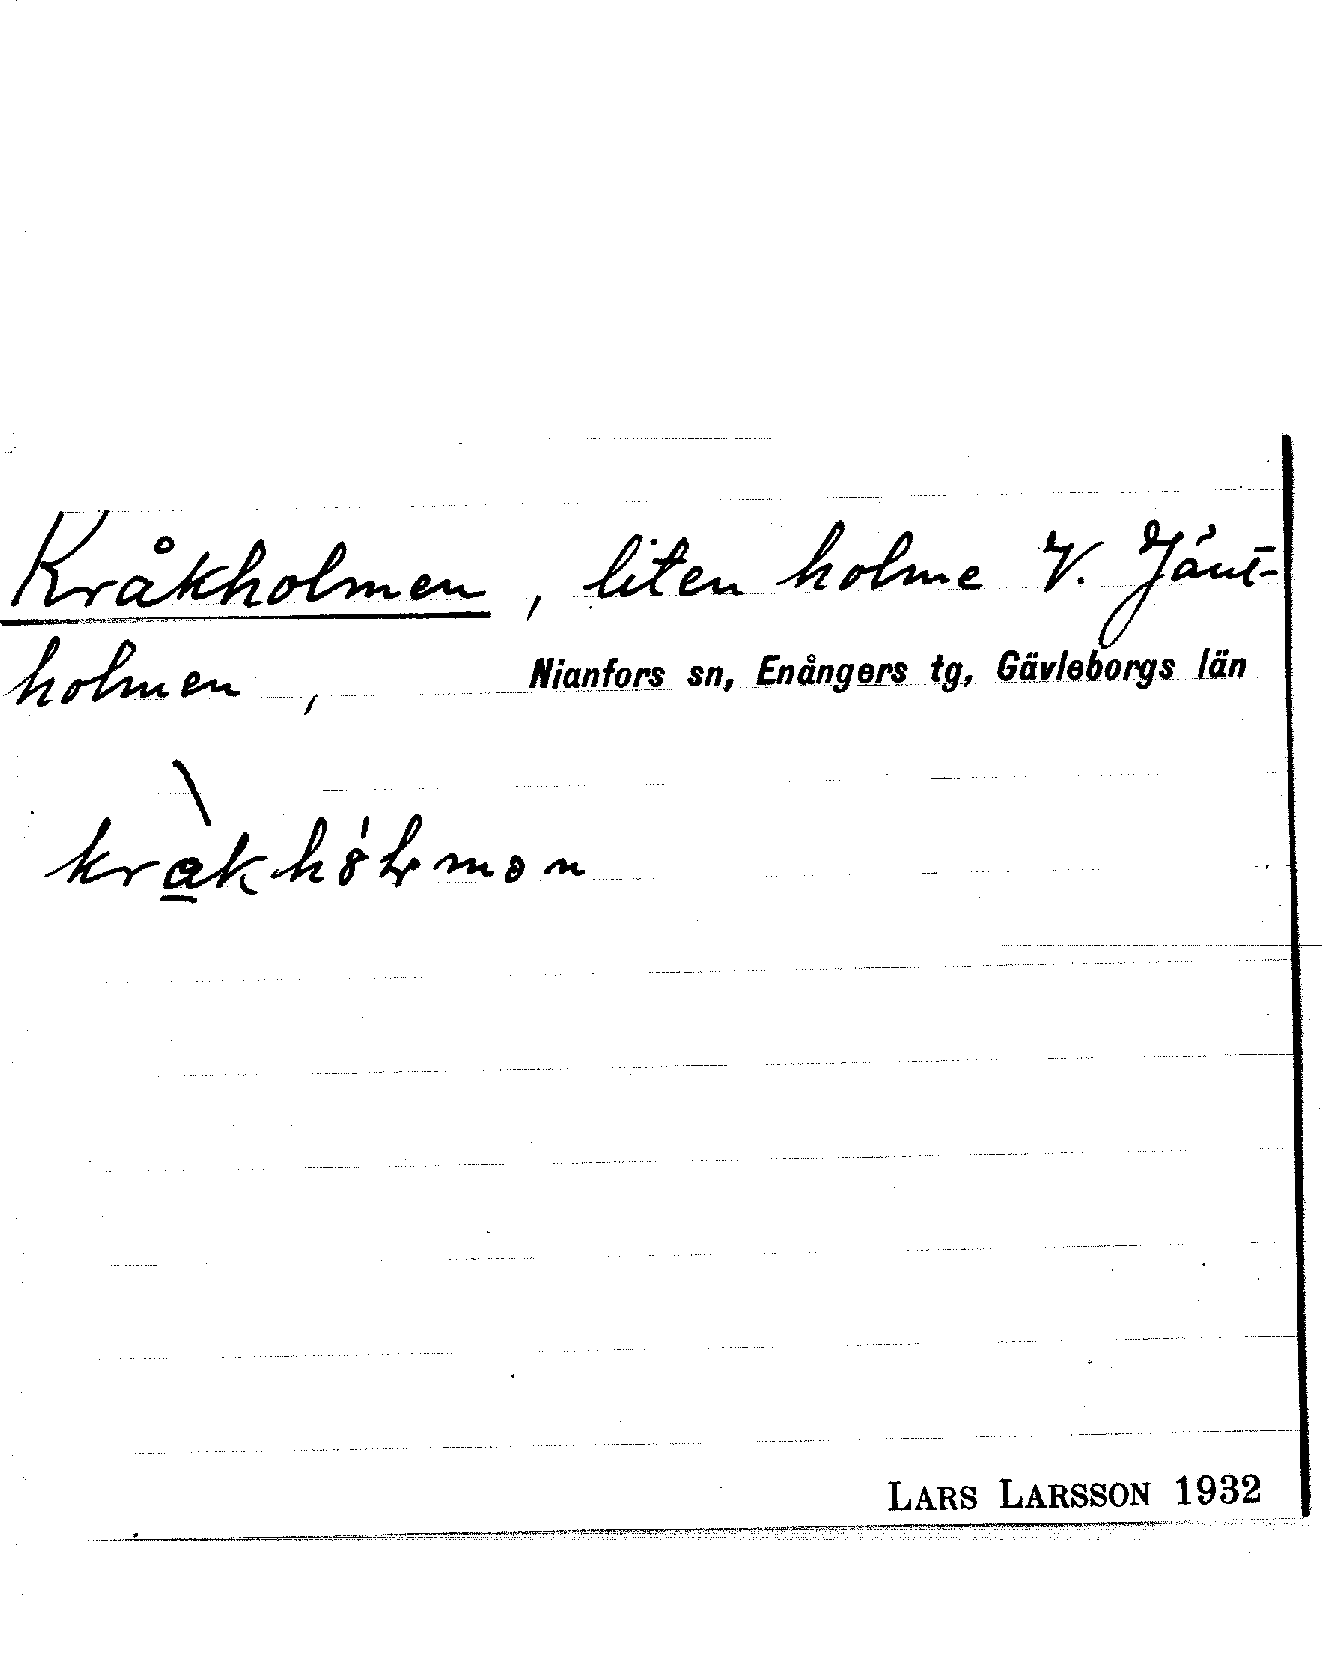 Kråkholmen, liten holme V. Jänt-
holmen,
Nianfors sn, Enångers tg, Gävleborgs län
LARS LARSSON 1932